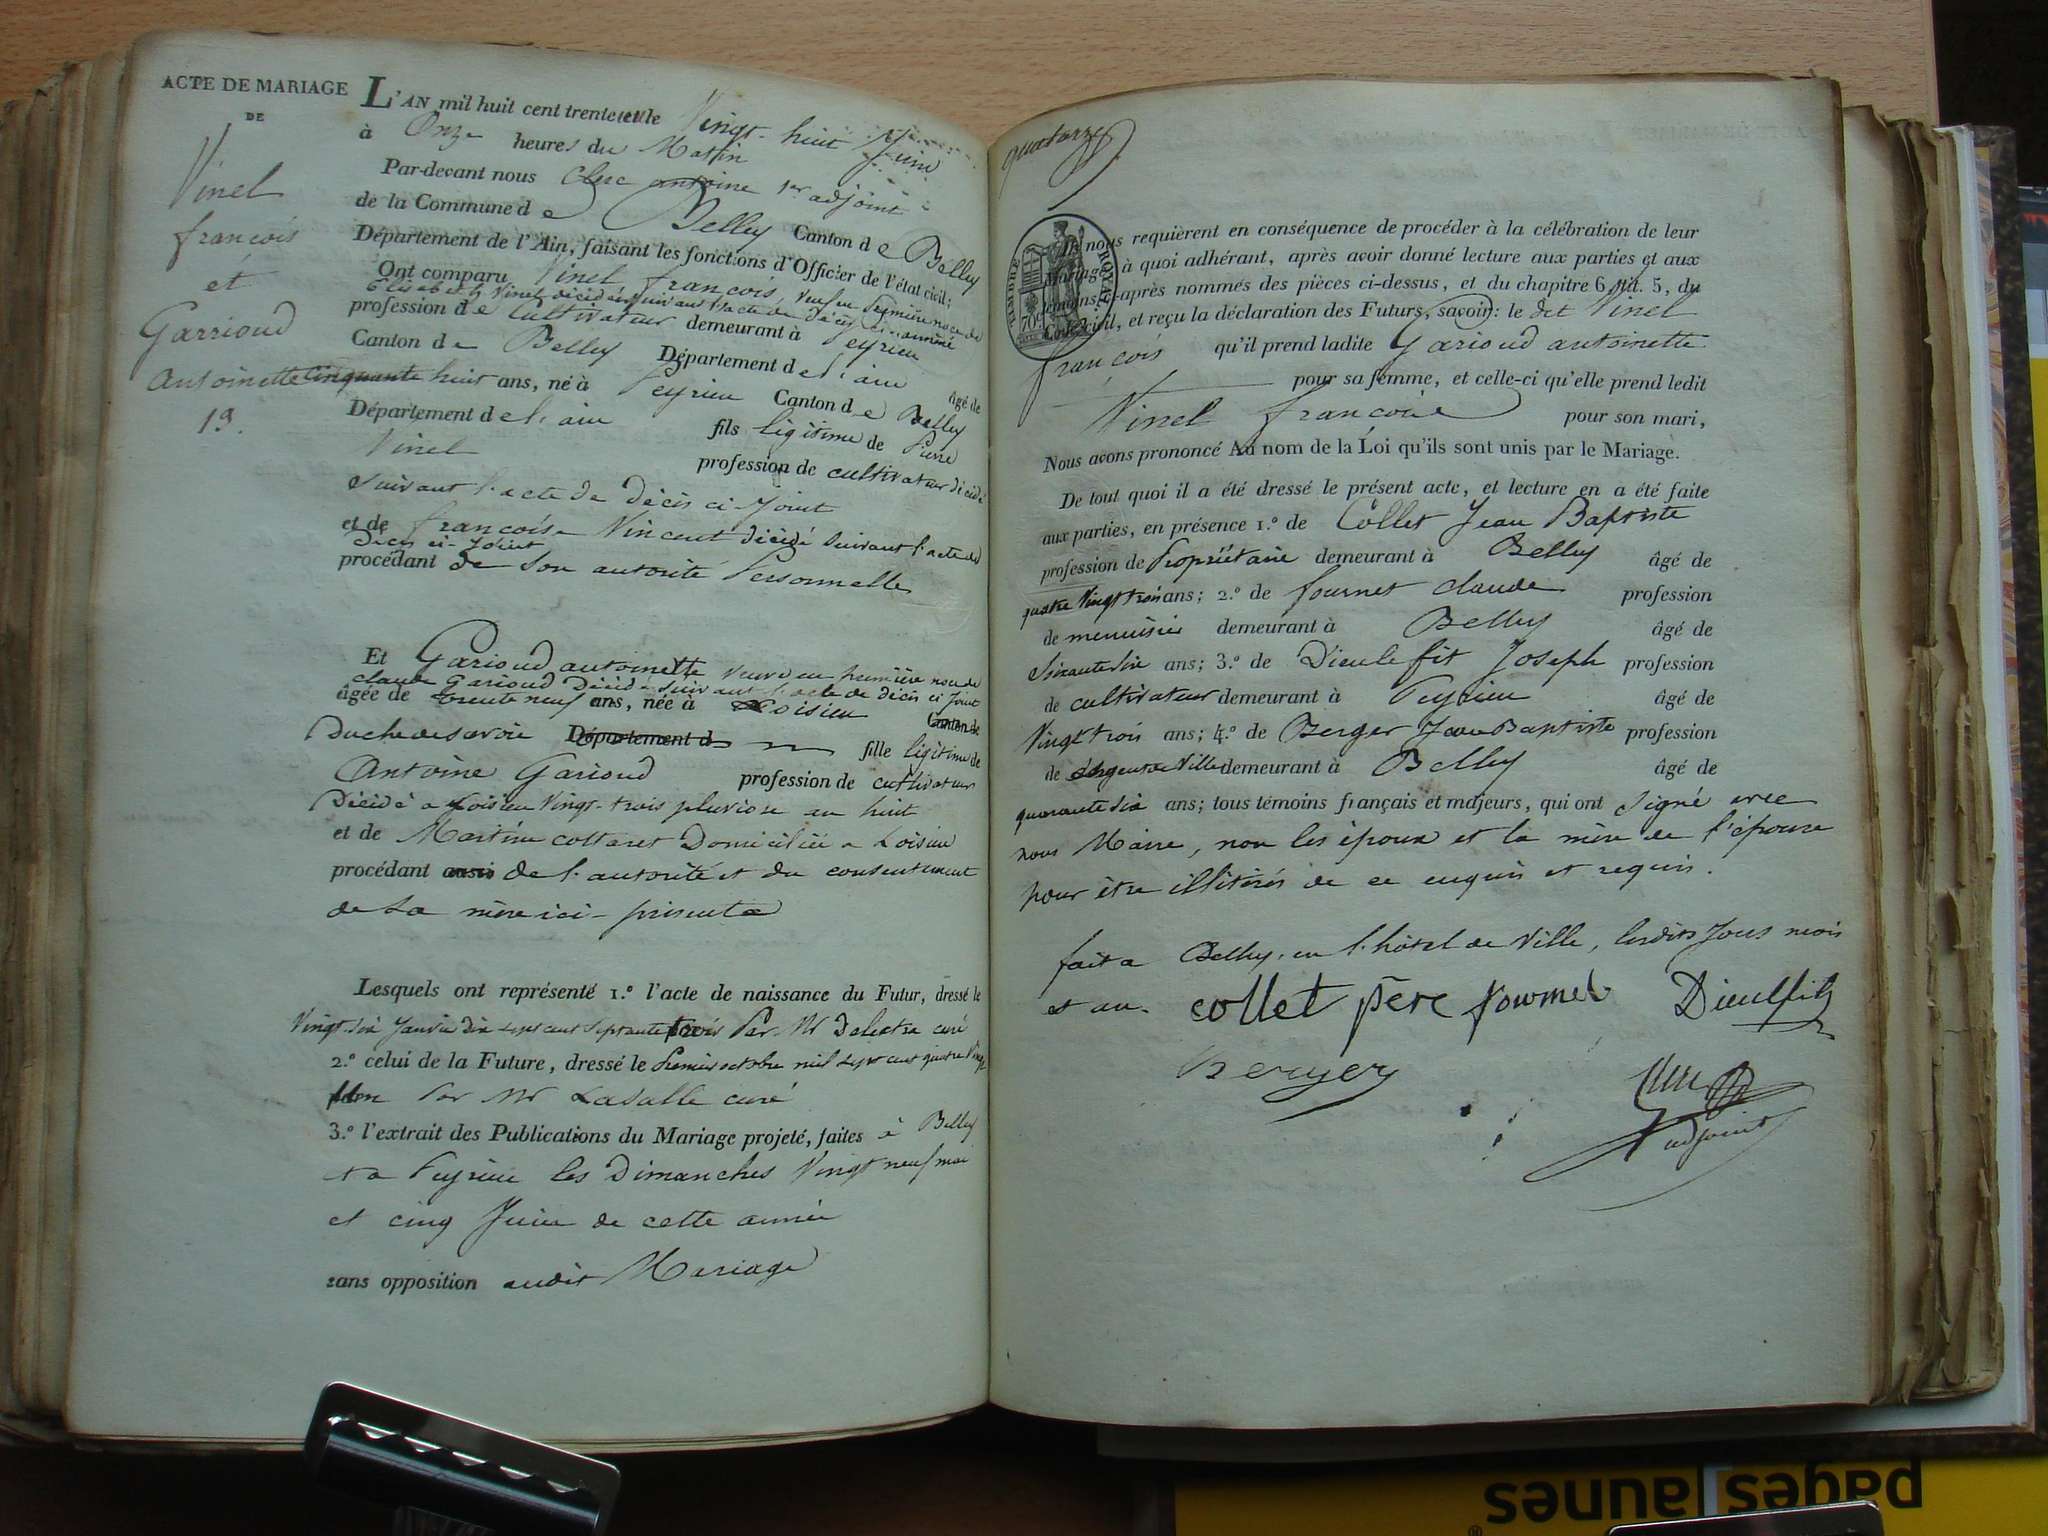 ACTE DE MARIAGE
DE
Vinel
françois
et
Garrioud
Antoinette
13.
L'AN mil huit cent trente et un le Vingt-huit Juin
à Onze heures du Matin
Par-devant nous Clerc antoine 1er adjoint
de la Commune de Belley Canton de Belley
Département de l'Ain, faisant les fonctions d'Officier de l'état civil;
Ont comparu Vinel françois veuf en première noce de
Elisabeth Vinel décédée suivant l'acte de décès
profession de Cultivateur demeurant à Peyrieu
Canton de Belley Département de l'ain âgé de
Cinquante huit ans, né à Peyrieu Canton de Belley
Département de l'ain fils légitime de Pierre
Vinel profession de cultivateur décédé
suivant l'acte de Décès ci-Joint
et de françoise Vincent décédé suivant l'acte de
décès ci-Joint
procédant de son autorité Personnelle
Et Garioud antoinette veuve en première noce de
claude Garioud Décédé suivant l'acte de décès ci Joint
âgée de trente neuf ans, née à Loisieu Canton de
Duché de savoie Département d fille légitime de
Antoine Garioud profession de cultivateur
Décédé a Loisieu Vingt-trois pluviose an huit
et de Martine collaret Domiciliée a Loisieu
procédant de l'autorité et du consentement
de sa mère ici-présente
Lesquels ont représenté 1.º l'acte de naissance du Futur, dressé le
Vingt-six Janvier dix sept cent septante trois Par Mr Delestra curé
2.º celui de la Future, dressé le Premier octobre mil sept cent quatre Vingt
onze Par Mr Lasalle curé
3.º l'extrait des Publications du Mariage projeté, faites à Belley
et a Peyrieu les Dimanches Vingt neuf mai
et cinq Juin de cette année
sans opposition audit Mariage
quatorze
TIMBRE ROYAL
70c
Ils nous requièrent en conséquence de procéder à la célébration de leur
Mariage, à quoi adhérant, après avoir donné lecture aux parties et aux
témoins ci-après nommés des pièces ci-dessus, et du chapitre 6, tit. 5, du
Code civil, et reçu la déclaration des Futurs, savoir: le dit Vinel
françois qu'il prend ladite Garioud antoinette
pour sa femme, et celle-ci qu'elle prend ledit
Vinel françois pour son mari,
Nous avons prononcé Au nom de la Loi qu'ils sont unis par le Mariage.
De tout quoi il a été dressé le présent acte, et lecture en a été faite
aux parties, en présence 1.º de Collet Jean Baptiste
profession de Propriétaire demeurant à Belley âgé de
quatre Vingt trois ans; 2.º de fournet claude profession
de menuisier demeurant à Belley âgé de
soixante six ans; 3.º de Dieulefit Joseph profession
de cultivateur demeurant à Peyrieu âgé de
Vingt trois ans; 4.º de Berger Jean Baptiste profession
de sergent de Ville demeurant à Belley âgé de
quarante six ans; tous témoins français et majeurs, qui ont signé avec
nous Maire, non les époux et la mère de l'épouse
pour être illitérés de ce enquis et requis.
fait a Belley, en l'hôtel de Ville, lesdits Jour mois
et an. collet père fournet Dieulefit
Berger
Clerc
adjoint
pages jaunes